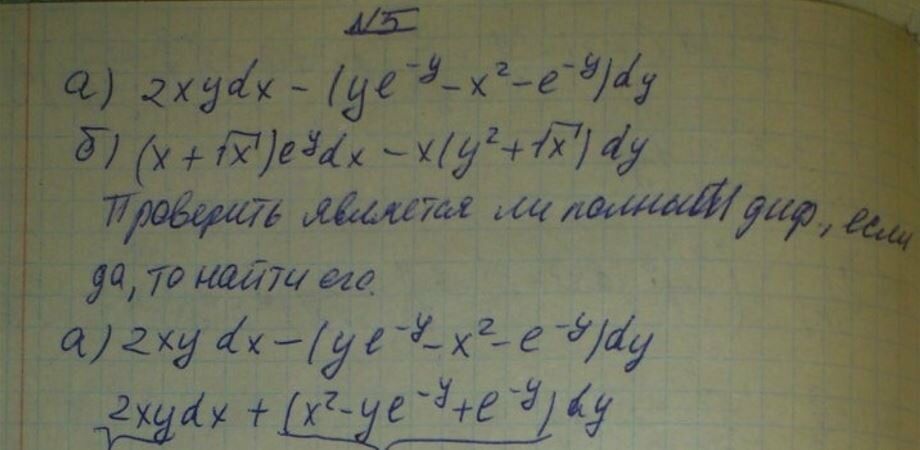 №5
а) 2xydx - (ye⁻ʸ - x² - e⁻ʸ)dy
б) (x + √x)eʸdx - x(y² + √x)dy
Проверить является ли полным диф., если
да, то найти его.
а) 2xy dx - (ye⁻ʸ - x² - e⁻ʸ)dy
2xydx + (x² - ye⁻ʸ + e⁻ʸ)dy